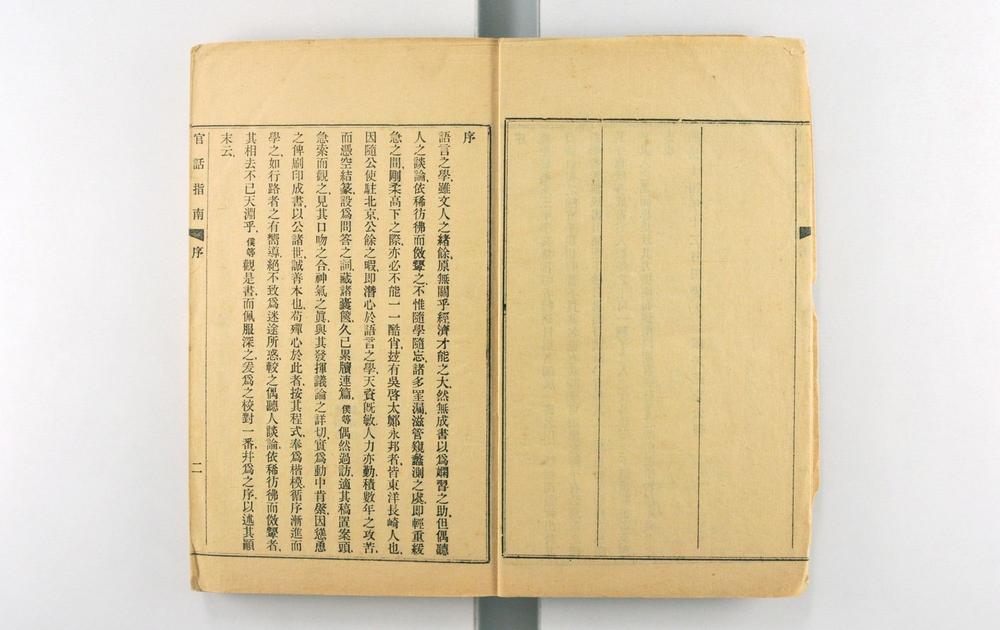 序
語言之學、雖文人之緒餘、原無關乎經濟才能之大、然無成書以爲嫺習之助、但偶聽
人之談論、依稀彷彿而傚顰之、不惟隨學隨忘、諸多罣漏、滋管窺蠡測之虞、即輕重緩
急之間、剛柔高下之際、亦必不能一一酷肖、玆有吳啓太鄭永邦者、皆東洋長崎人也、
因隨公使駐北京、公餘之暇、即潛心於語言之學、天資旣敏、人力亦勤、積數年之攻苦、
而憑空結篆、設爲問答之詞、藏諸囊篋、久已累牘連篇、僕等偶然過訪、適其稿置案頭、
急索而觀之、見其口吻之合、神氣之眞、與其發揮議論之詳切、實爲動中肯綮、因慫慂
之俾刷印成書、以公諸世、誠善本也、苟殫心於此者、按其程式、奉爲楷模、循序漸進而
學之、如行路者之有嚮導、絕不致爲迷途所惑、較之偶聽人談論、依稀彷彿而傚顰者、
其相去不已天淵乎、僕等觀是書、而佩服深之、爰爲之校對一番、幷爲之序、以述其顚
末云、
官話指南 序 二